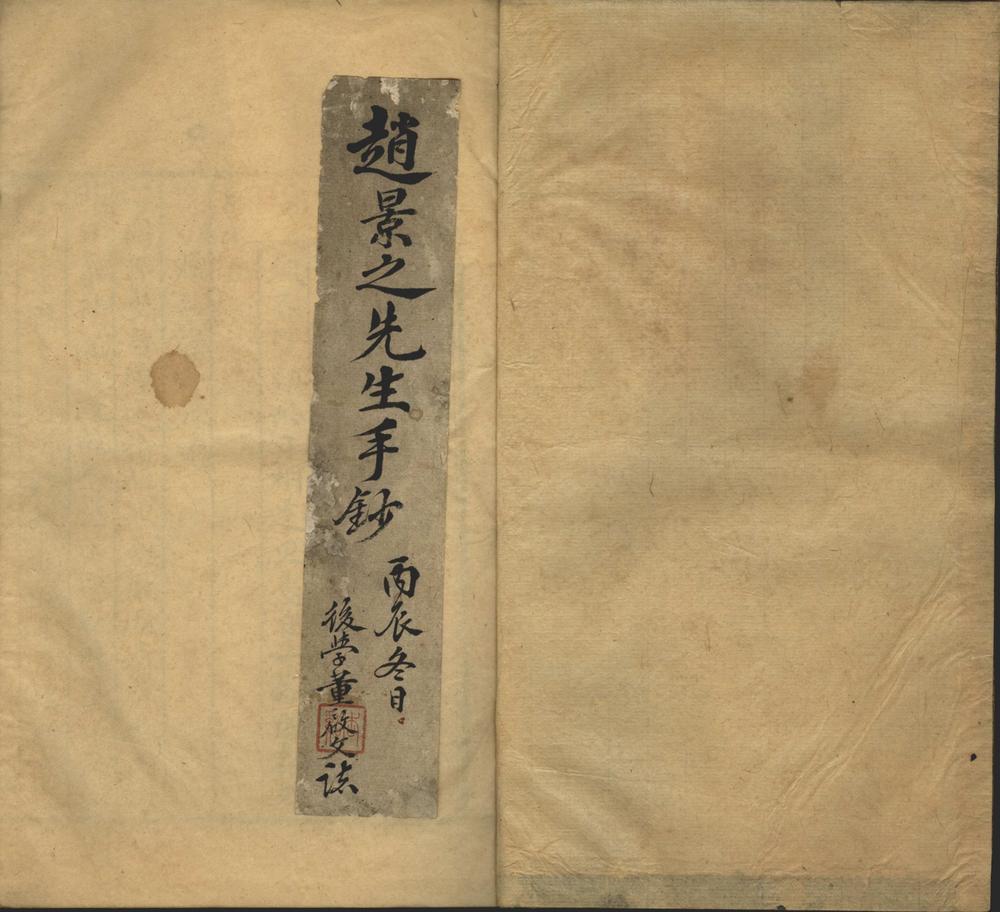 趙景之先生手鈔
丙辰冬日
後學董啟文誌